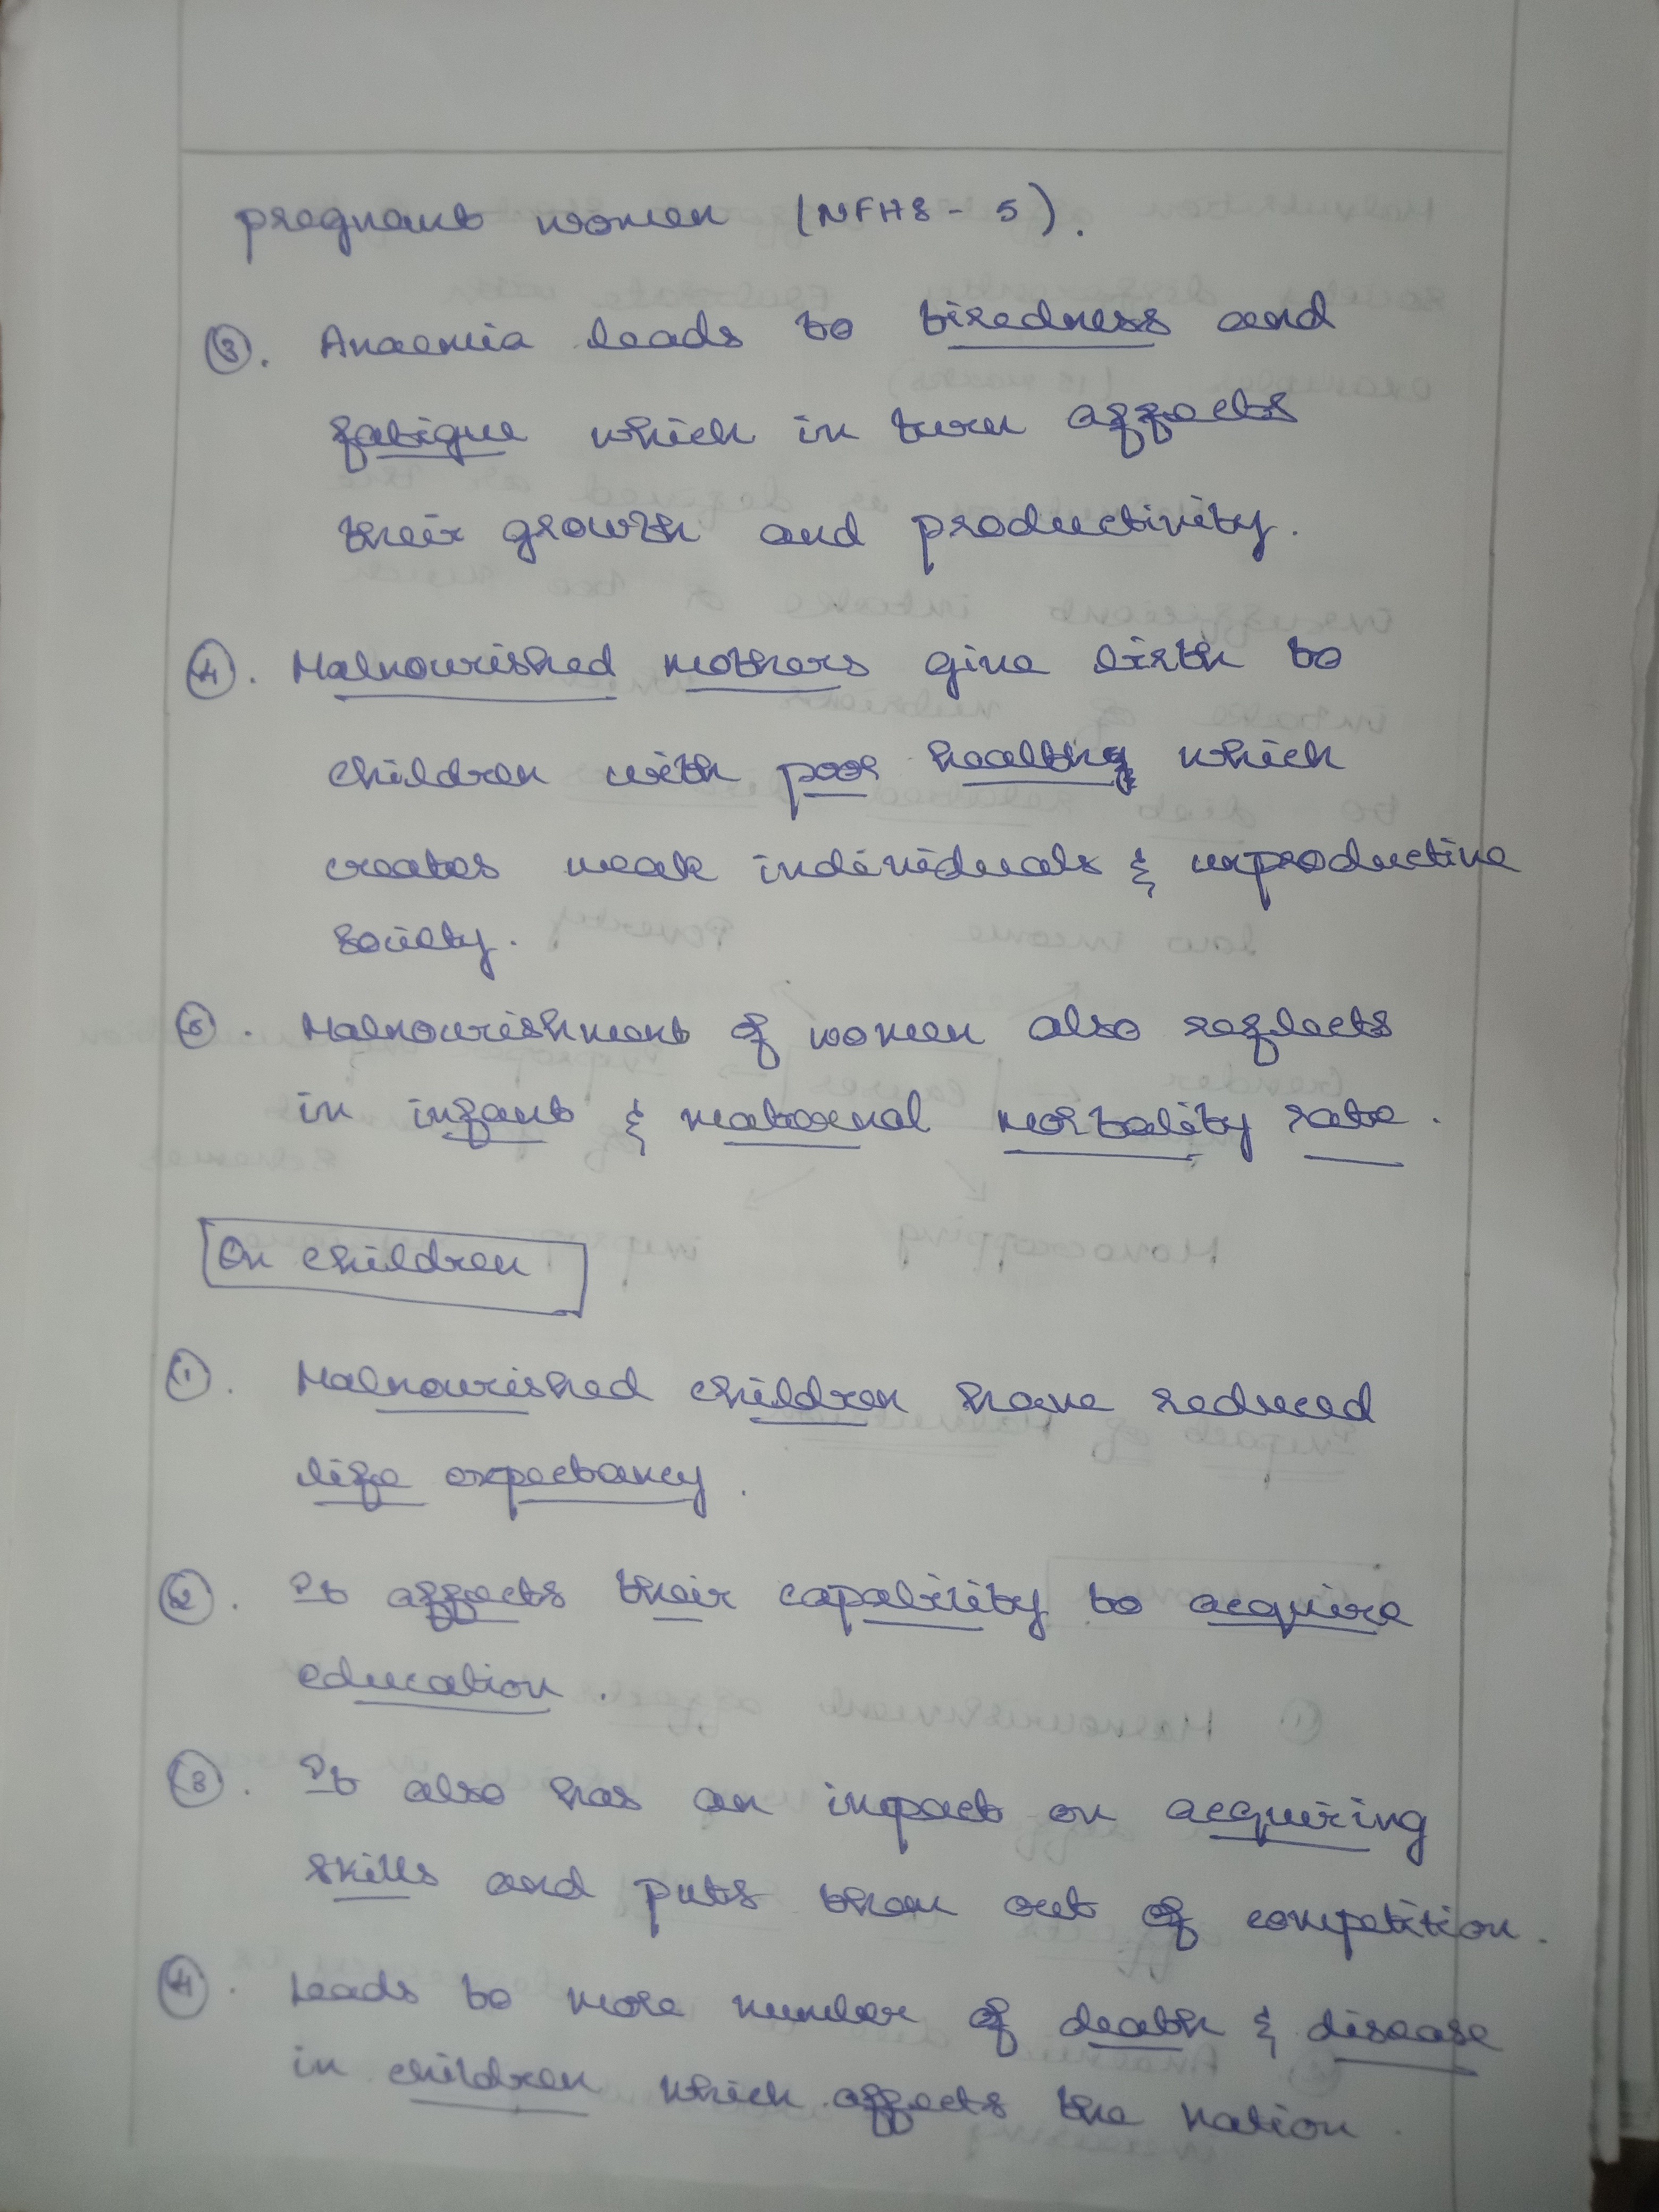 pregnant women (NFHS - 5).
③. Anaemia leads to tiredness and
fatigue which in turn affects
their growth and productivity.
④. Malnourished mothers give birth to
children with poor health which
creates weak individuals & unproductive
society.
⑤. Malnourishment of women also reflects
in infant & maternal mortality rate.
On children
①. Malnourished children have reduced
life expectancy.
②. It affects their capability to acquire
education.
③. It also has an impact on acquiring
skills and puts them out of competition.
④. Leads to more number of death & disease
in children which affects the nation.